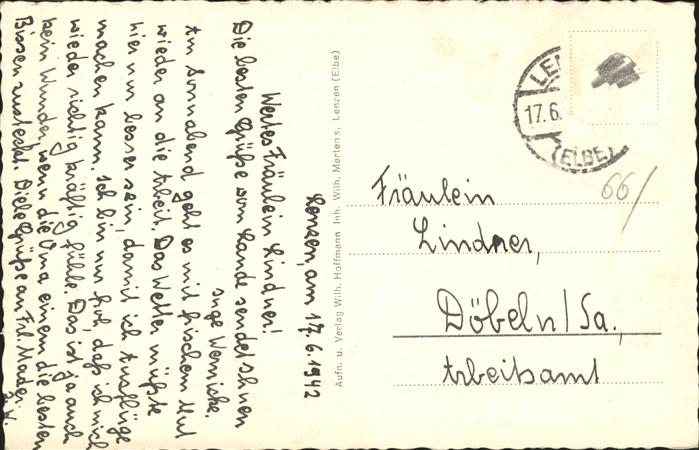 Lenzen, am 17.6.1942
Wertes Fräulein Lindner!
Die besten Grüße vom Lande sendet Ihnen
Inge Wernicke.
Am Sonnabend geht es mit frischem Mut
wieder an die Arbeit. Das Wetter müßte
hier nur besser sein, damit ich Ausflüge
machen kann. Ich bin nur froh, daß ich mich
wieder richtig kräftig fühle. Das ist ja auch
kein Wunder, wenn die Oma einem die besten
Bissen zusteckt. Viele Grüße an Frl. Mader.
Aufn. u. Verlag Wilh. Hoffmann Inh. Wilh. Mertens, Lenzen (Elbe)
LEN
17.6.
(ELBE)
66/
Fräulein
Lindner,
Döbeln/Sa.,
Arbeitsamt